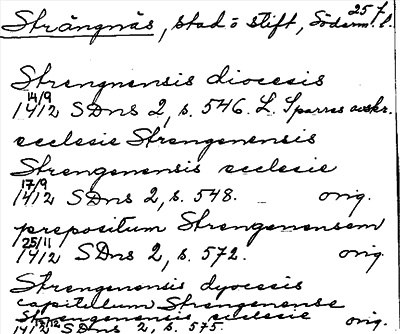 257.
Strängnäs, stad o stift, Söderm. l.
Strengnensis diocesis
14/9
1412 SDns 2, s. 546. L. Sparres avskr.
ecclesie Strengenensis
Strengenensis ecclesie
17/9
1412 SDns 2, s. 548. orig.
prepositum Strengenensem
25/11
1412 SDns 2, s. 572. orig.
Strengenensis dyocesis
capitulum Strengenense
Strengenensis ecclesie
1412 SDns 2, s. 575. orig.